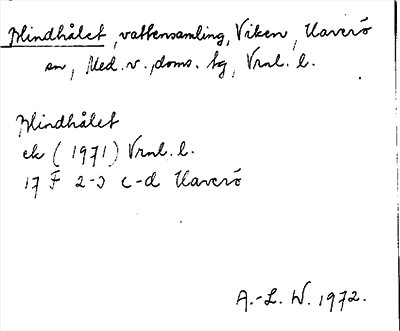 Blindhålet, vattensamling, Viken, Haverö
sn, Med. v. doms. tg, Vrnl. l.
Blindhålet
ek (1971) Vrnl. l.
17 F 2-3 c-d Haverö
A.-L. W. 1972.